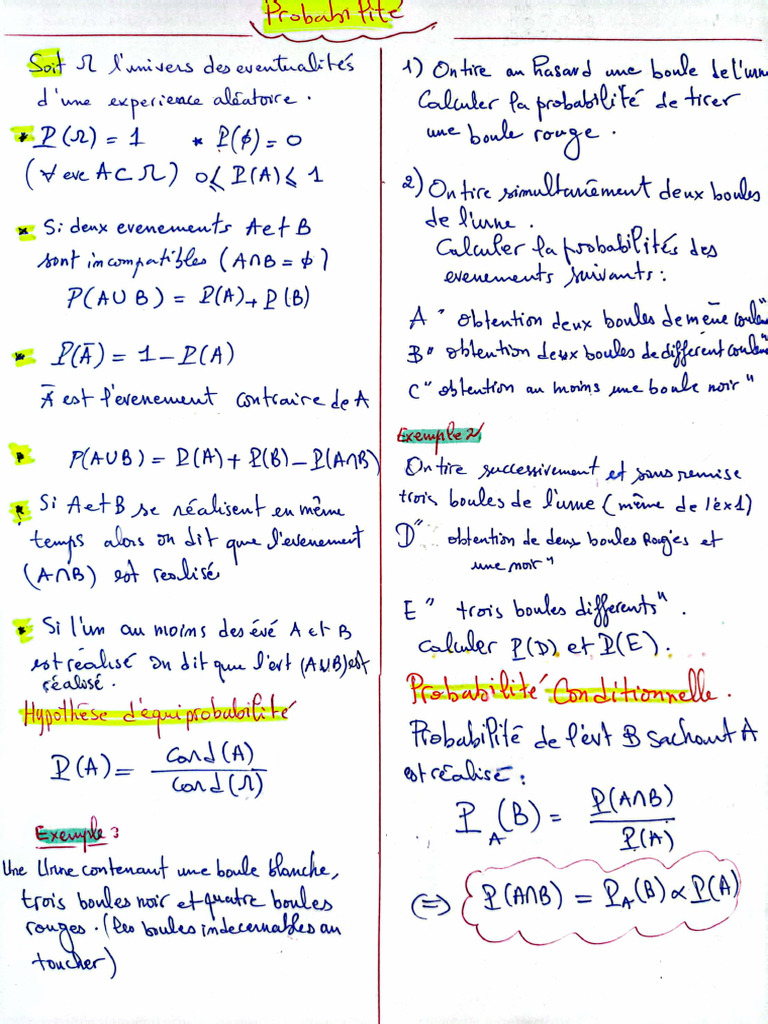 Probabilité
Soit Ω l'univers des eventualités
d'une experience aléatoire.
* P(Ω) = 1 * P(ϕ) = 0
(∀ eve A⊂Ω) 0 ≤ P(A) ≤ 1
* Si deux evenements A et B
sont incompatibles (A∩B = ϕ)
P(A∪B) = P(A) + P(B)
* P(Ā) = 1 - P(A)
Ā est l'evenement contraire de A
* P(A∪B) = P(A) + P(B) - P(A∩B)
* Si A et B se réalisent en même
temps alors on dit que l'evenement
(A∩B) est realisé
* Si l'un au moins des évé A et B
est réalisé on dit que l'evt (A∪B) est
réalisé.
Hypothèse d'équiprobabilité
P(A) = Card(A) / Card(Ω)
Exemple :
Une Urne contenant une boule blanche,
trois boules noir et quatre boules
rouges. (les boules indecernables au
toucher)
1) On tire au hasard une boule de l'urne
Calculer la probabilité de tirer
une boule rouge.
2) On tire simultanément deux boules
de l'urne.
Calculer la probabilités des
evenements suivants :
A " obtention deux boules de même couleur"
B " obtention deux boules de different couleur"
C " obtention au moins une boule noir "
Exemple 2:
On tire successivement et sans remise
trois boules de l'urne (même de l'ex1)
D" obtention de deux boules Rouges et
une noir "
E " trois boules differents".
Calculer P(D) et P(E).
Probabilité Conditionnelle.
Probabilité de l'évt B sachant A
est réalisé :
P_A(B) = P(A∩B) / P(A)
⇔ P(A∩B) = P_A(B) × P(A)